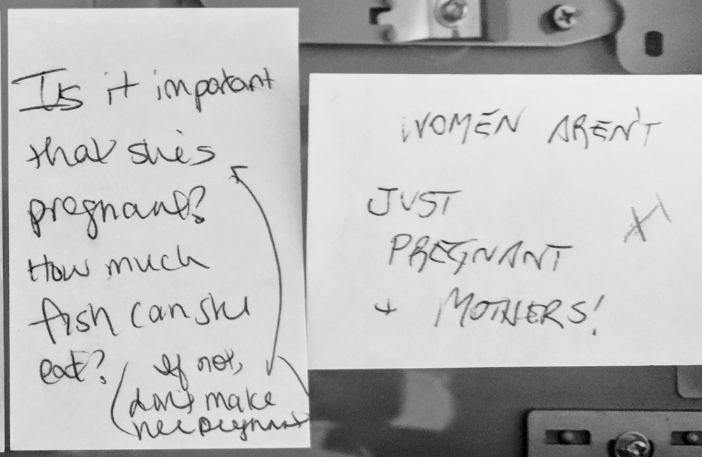 Is it important
that she's
pregnant?
How much
fish can she
eat?
(If not,
don't make
her pregnant
WOMEN AREN'T
JUST
PREGNANT
+ MOTHERS!